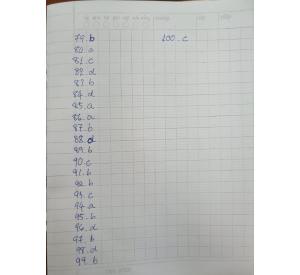 79. b
80. a
81. c
82. d
83. b
84. d
85. a
86. a
87. b
88. d
89. b
90. c
91. b
92. b
93. c
94. a
95. b
96. d
97. b
98. d
99. b
100. c